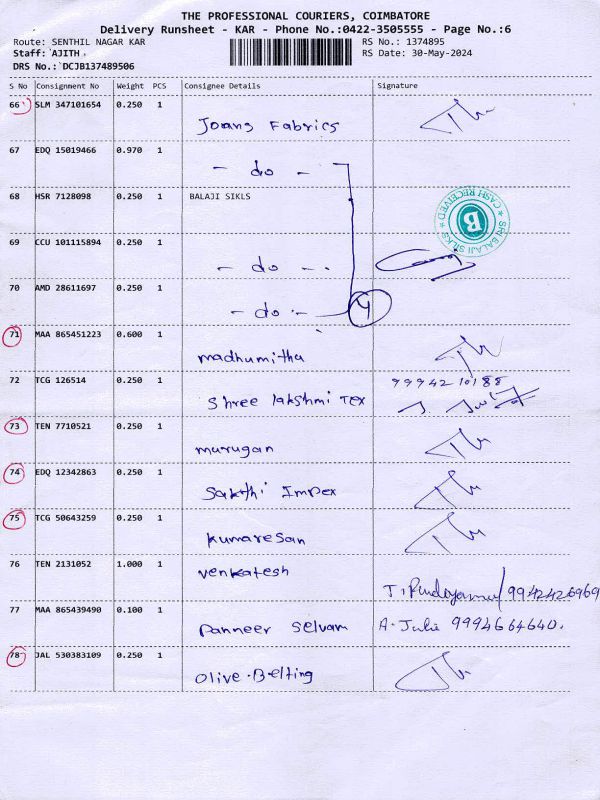 THE PROFESSIONAL COURIERS, COIMBATORE
Delivery Runsheet - KAR - Phone No.:0422-3505555 - Page No.:6
Route: SENTHIL NAGAR KAR RS No.: 1374895
Staff: `AJITH` RS Date: 30-May-2024
DRS No.: `DCJB137489506
S No Consignment No Weight PCS Consignee Details Signature
66 SLM 347101654 0.250 1
Joans Fabrics
67 EDQ 15019466 0.970 1
- do -
68 HSR 7128098 0.250 1 BALAJI SIKLS
SRI BALAJI SILKS ★ CASH RECEIVED ★
B
69 CCU 101115894 0.250 1
- do - .
70 AMD 28611697 0.250 1
- do - 4
71 MAA 865451223 0.600 1
madhumitha
72 TCG 126514 0.250 1 9994210188
Shree lakshmi Tex
73 TEN 7710521 0.250 1
murugan
74 EDQ 12342863 0.250 1
Sakthi Impex
75 TCG 50643259 0.250 1
Kumaresan
76 TEN 2131052 1.000 1
Venkatesh
/9942426969
77 MAA 865439490 0.100 1
Panneer Selvam A. Julie 9994664640.
78 JAL 530383109 0.250 1
Olive.Belting